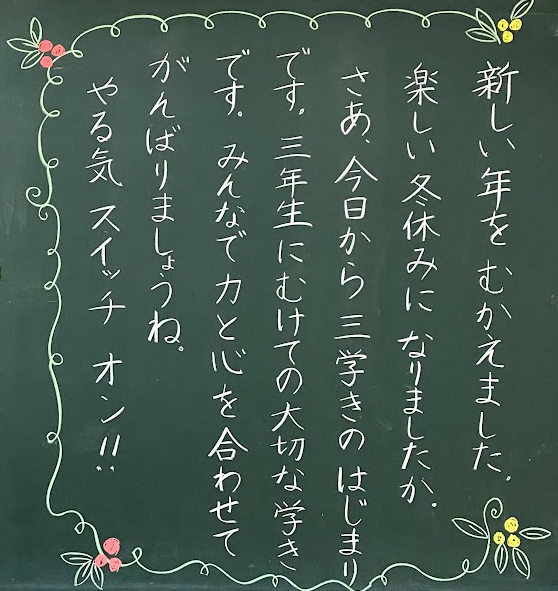 新しい年をむかえました。
楽しい冬休みになりましたか。
さあ、今日から三学きのはじまり
です。三年生にむけての大切な学き
です。みんなで力と心を合わせて
がんばりましょうね。
やる気スイッチオン!!